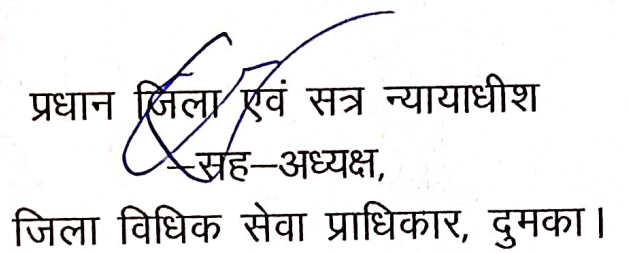 प्रधान जिला एवं सत्र न्यायाधीश
–सह–अध्यक्ष,
जिला विधिक सेवा प्राधिकार, दुमका।